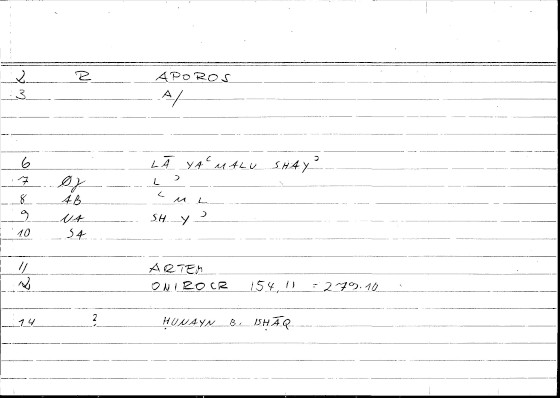 2 R APOROS
3 A/
6 LĀ YAʿMALU SHAYʾ
7 L ʾ
8 AB ʿ M L
9 NA SH Y ʾ
10 SA
11 ARTEM
12 ONIROCR 154,11 = 279.10
14 ? ḤUNAYN B. ISḤĀQ